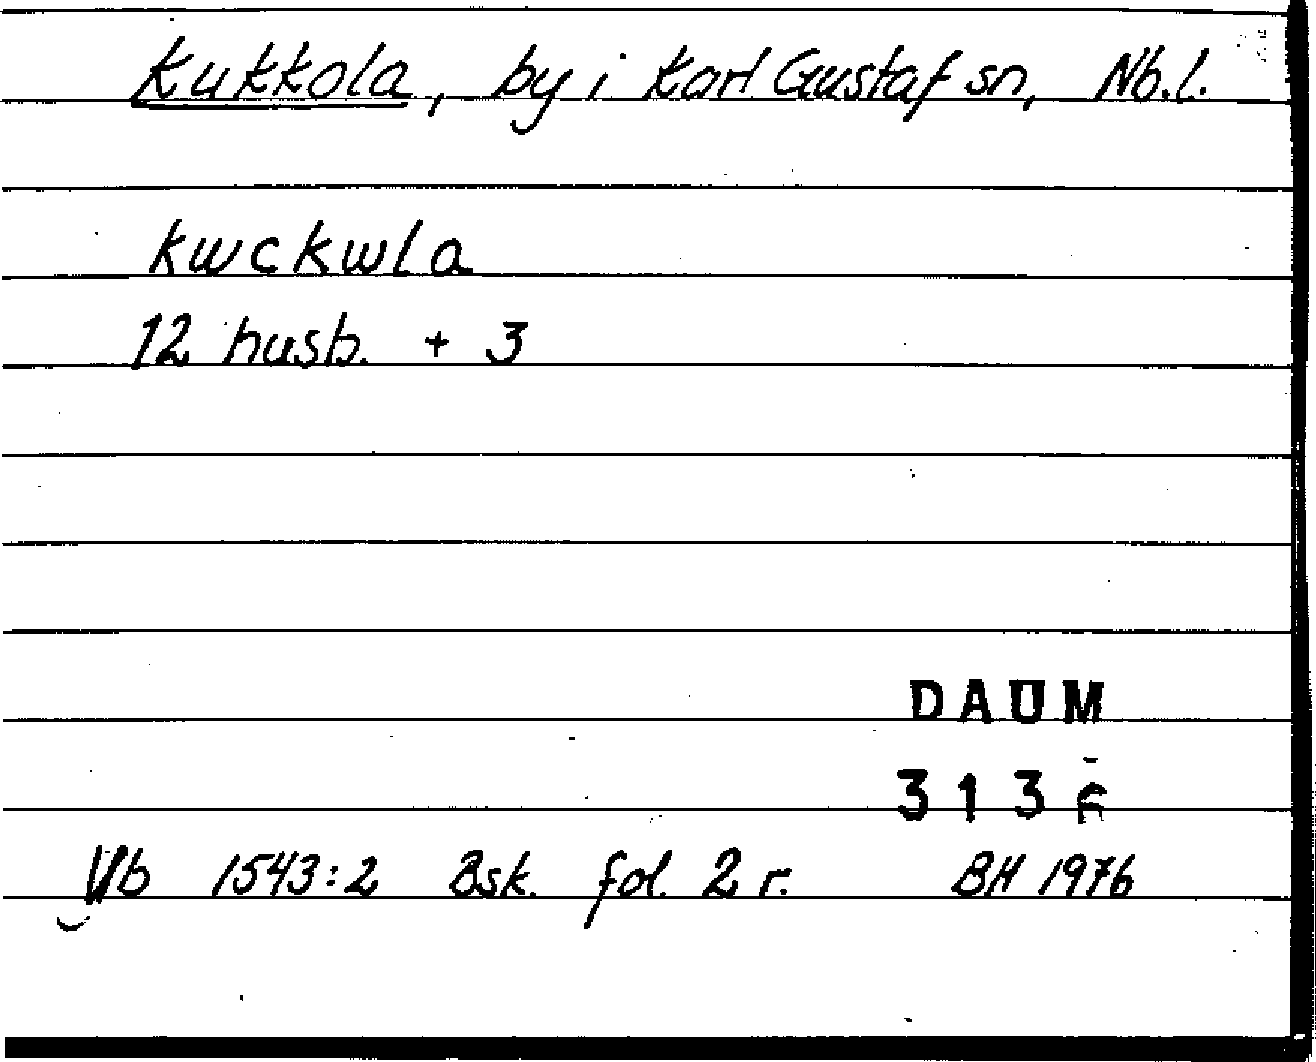 Kukkola, by i Karl Gustaf sn, Nb.l.
Kwckwla
12 husb. + 3
DAUM
3136
Vb 1543:2 Bsk. fol. 2 r. BH 1976